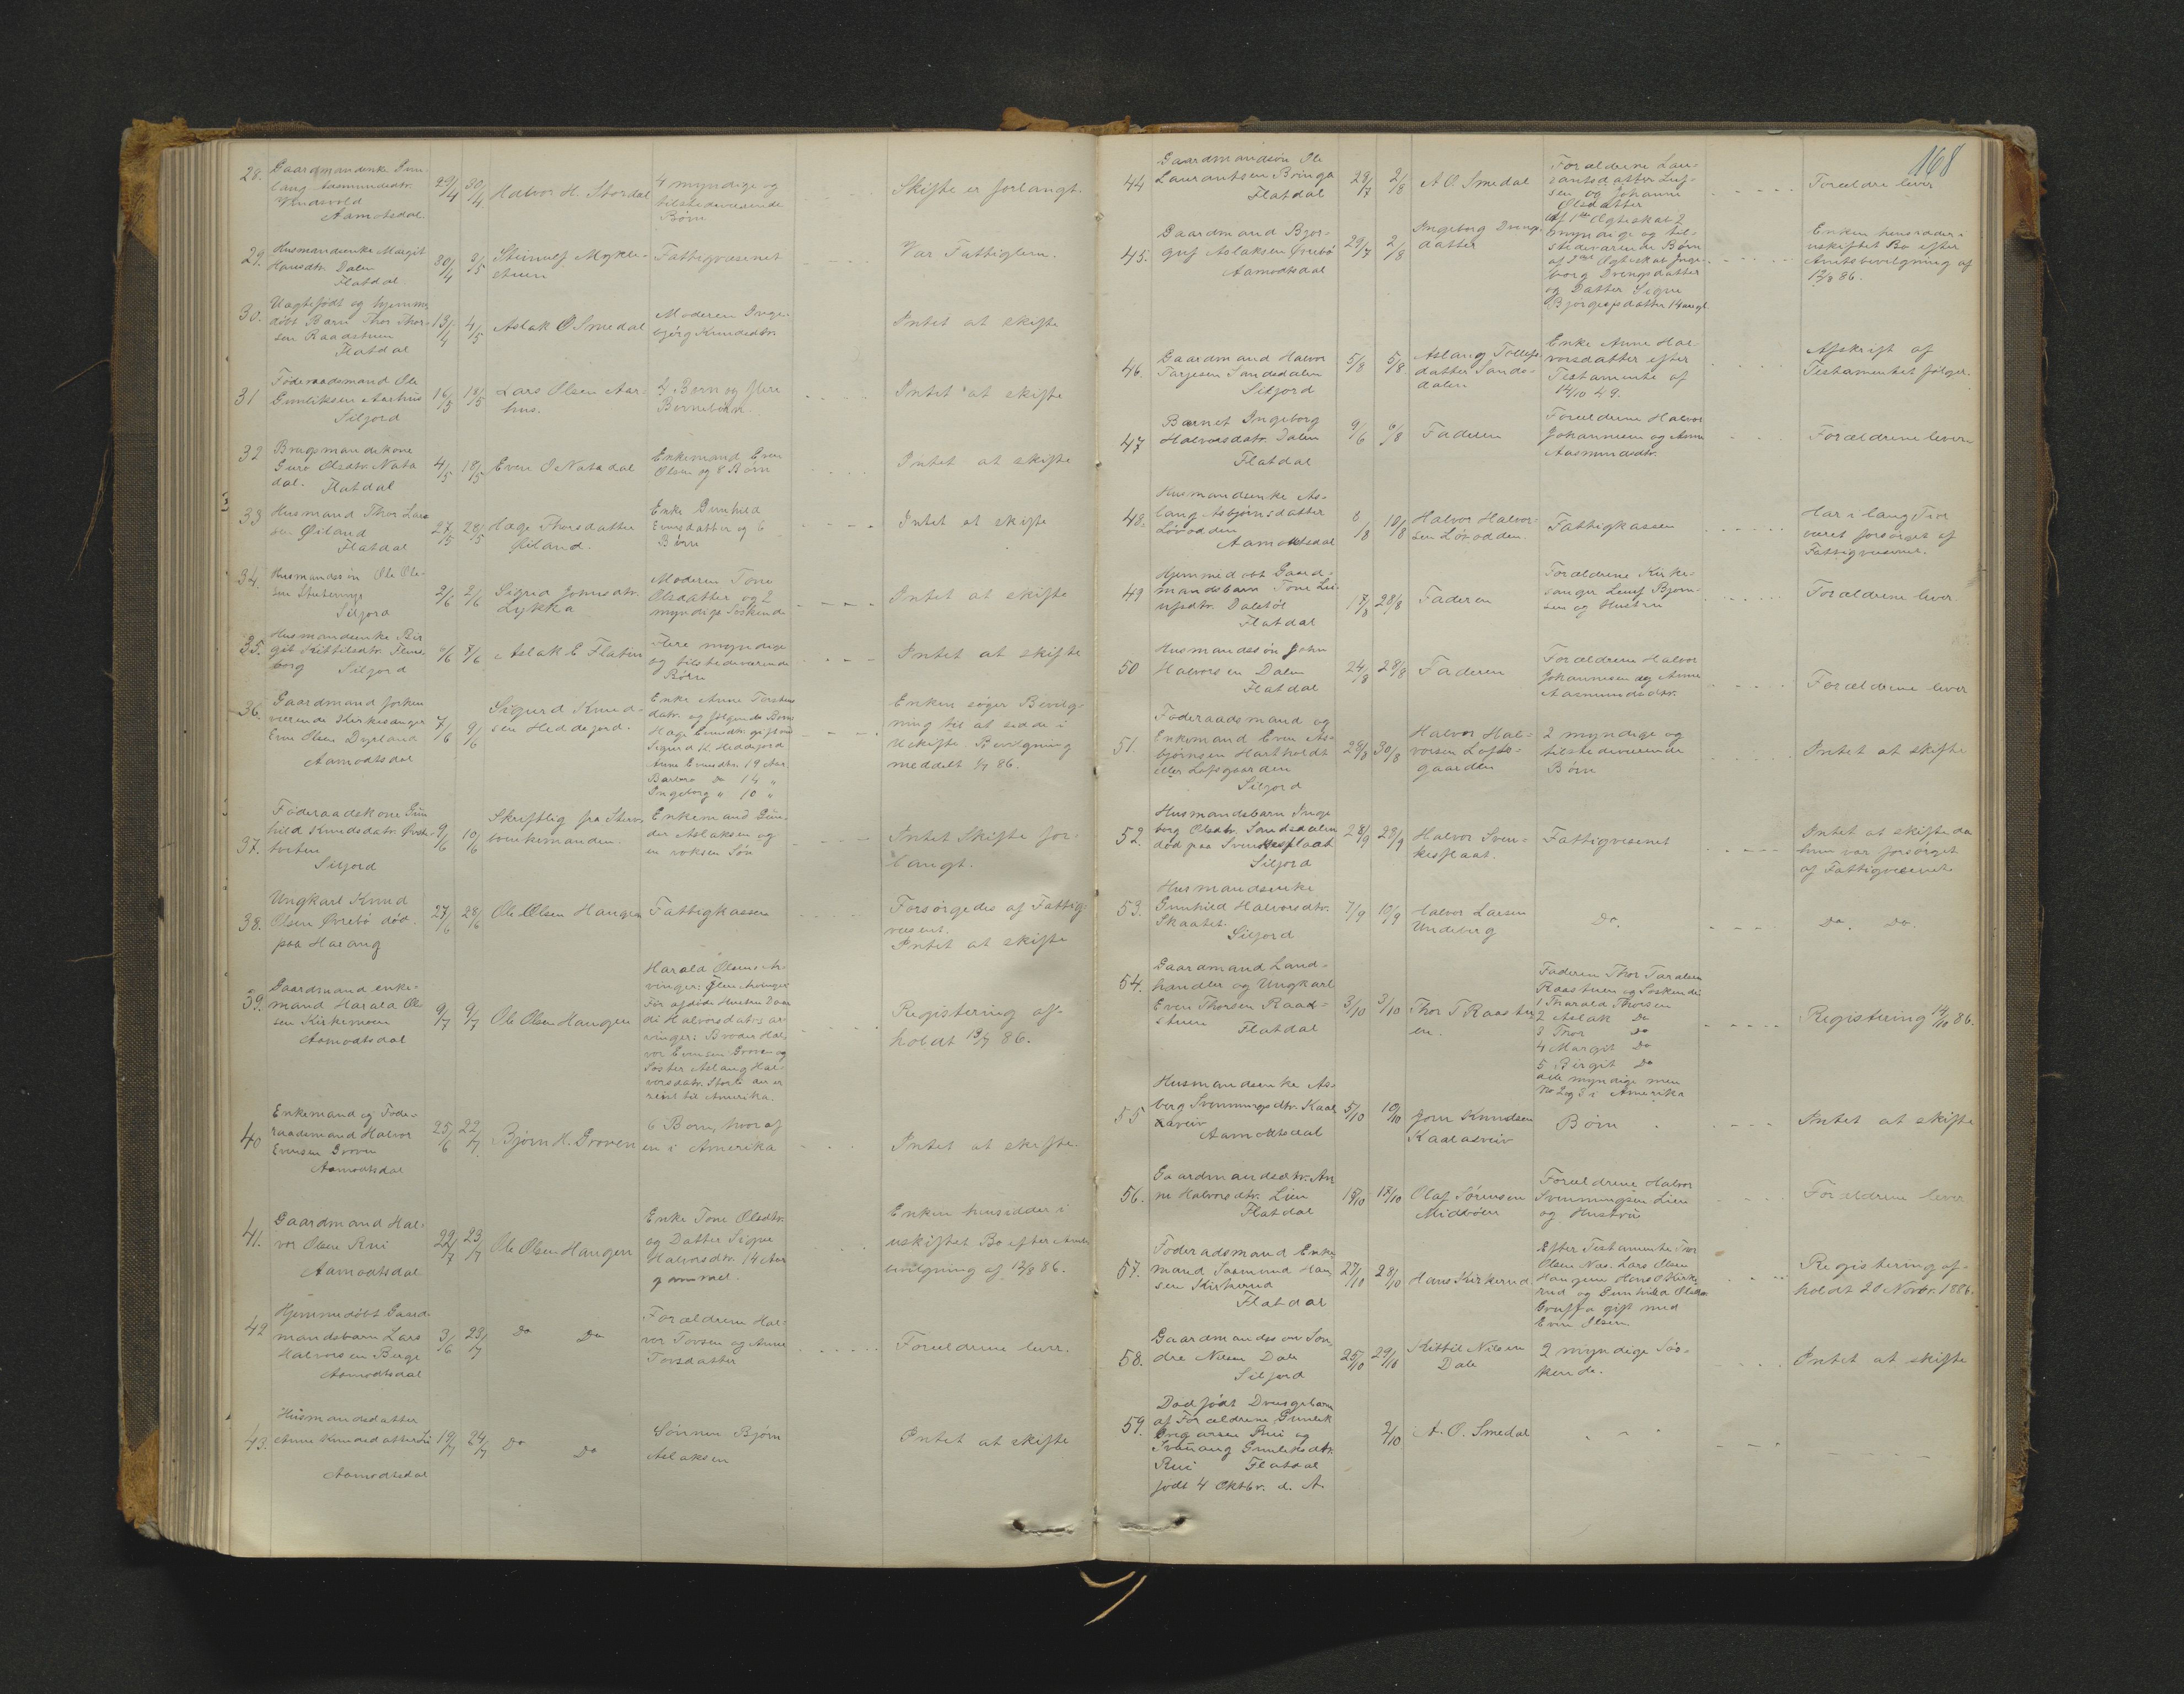 28. Gaardmandenke Svin-
laug Aasmundsdtr.
Vindsvold
Aamotsdal.
29/4 30/4 Halvor H. Stordal
4 myndige og
tilstedeværende
Børn
Skifte er forlangt.
29. Husmandsenke Margit
Hansdtr. Dalen
Flatdal
30/4 3/5 Steinulf Mykle-
stuen
Fattigvæsenet
Var Fattiglem.
30. Uægtefødt og hjemme
døbt Barn Thor Thor-
sen Raadstuen
Flatdal
13/4 4/5 Aslak O Smedal
Moderen Inge-
bjørg Knudsdtr.
Intet at skifte
31 Føderaadsmand Ole
Gunliksen Aarhus
Siljord
16/5 18/5 Lars Olsen Aar-
hus.
4 Børn og flere
Børnebørn
Intet at skifte
32 Brugsmandskone
Guro Olsdtr. Nata
dal. Flatdal
4/5 18/5 Even O Natadal
Enkemand Even
Olsen og 8 Børn
Intet at skifte
33 Husmand Thor Lars
sen Øiland
Flatdal
27/5 28/5 Hæge Thorsdatter
Øiland.
Enke Gunhild
Evensdatter og 6
Børn
Intet at skifte
34. Husmandssøn Ole Ole-
sen
Siljord
2/6 2/6 Sigrid Jonsdtr.
Lykka
Moderen Tone
Olsdatter og 2
myndige Søskende
Intet at skifte
35. Husmandsenke Bir
git Kittilsdtr. Flens-
borg Siljord
6/6 8/6 Aslak E Flatin
Flere myndige
og tilstedeværende
Børn
Intet at skifte
36. Gaardmand forhen
værende Kirkesanger
Even Olsen Dyrland
Aamodtsdal
7/6 9/6 Sigurd Knud-
sen Heddejord.
Enke Anne Torstens
datr. og følgende Børn
Hæge Evensdtr gift med
Sigurd K. Heddejord
Anne Evensdtr. 19 Aar
Barbro Do 14 "
Ingeborg " 10 "
Enken søger Bevilg-
ning til at sidde i
Uskifte. Bevilgning
meddelt 1/7 86.
37. Føderaadskone Gun
hild Knudsdatr. Øvste-
tveten
Siljord
9/6 10/6 Skriftlig fra Sterv-
boenkemanden.
Enkemand Gun-
der Aslaksen og
en voksen Søn
Intet Skifte for-
langt.
38. Ungkarl Knud
Olsen Øvrebø død.
paa Haeang
27/6 28/6 Ole Olsen Haugen
Fattigkassen
Forsørgedes af Fattig-
væsent.
Intet at skifte
39. Gaardmand enke-
mand Harald Ole
sen Kirkemoen
Aamodtsdal
9/7 9/7 Ole Olsen Haugen
Harald Olsens Ar-
vinger:
Før afdøde Hustru Daar
di Halvorsdatrs ar-
vinger: Broder Hal-
vor Evensen Groven og
Søster Aslaug Hal-
vorsdatr. Storli der er
reist til Amerika.
Registering af-
holdt 13/7 86.
40 Enkemand og Føde-
raadsmand Halvor
Evensen Groven
Aamodtsdal
25/6 22/7 Bjørn H. Groven
6 Børn, hvoraf
en i Amerika
Intet at skifte
41. Gaardmand Hal-
vor Olsen Rui
Aamodtsdal
22/7 23/7 Ole Olsen Haugen
Enke Tone Olsdtr.
og Datter Signe
Halvorsdtr. 14 Aar
gammel.
Enken hensidder i
uskiftet Bo efter Amts
bevilgning af 12/8 86.
42 Hjemmedøbt Gaard
mandsbarn Lars
Halvorsen Berge
Aamodtsdal
3/6 23/7 Do Do
Forældrene Hal-
vor Tovsen og Anne
Tovsdatter
Forældrene lever.
43. Husmandsdatter
Anne Knudsdatter Li
Aamodtsdal
19/7 24/7 Do Do
Sønnen Bjørn
Aslaksen
Intet at skifte
168
44 Gaardmandssøn Ole
Laurantsen Bringa
Flatdal
29/7 2/8 A O. Smedal
Forældrene Lau-
og Johanne
Olsdatter
Forældre lever
45. Gaardmand Bjor-
gulf Aslaksen Øvrebø
Aamodtsdal
29/7 2/8 Ingeborg Drengs-
datter
Af 1ste Ægteskab 2
myndige og til-
stedeværende Børn
af 2det Ægteskab Inge
borg Drengsdatter
og Datter Signe
Bjorgulfsdatter 14 aar gl
Enken hensidder i
uskiftet Bo efter
Amtsbevilgning af
12/8 86.
46. Gaardmand Halvor
Targesen Sandsdalen
Siljord
5/8 5/8 Aslaug Tollefs-
datter Sands-
dalen
Enke Anne Hal
vorsdatter efter
Testamente af
14/10 49.
Afskrift af
Testamentet følger.
47 Barnet Ingeborg
Halvorsdatr. Dalen
Flatdal
9/6 6/8 Faderen
Forældrene Halvor
Johannesen og Anne
Aasmundsdtr.
Forældrene levere
48. Husmandsenke As-
laug Asbjørnsdatter
Løvodden
Aamodtsdal
8/8 10/8 Halvor Halvor-
sen Løvodden.
Fattigkassen
Har i lang Tid
været forsørget af
Fattigvæsenet.
49 Hjemmedøbt Gaard-
mandsbarn Tone Lei-
ufsdtr. Dalstøl
Flatdal
17/8 28/8 Faderen
Forældrene Kirke-
sanger Leiuf Bjørn-
sen og Hustru
Forældrene lever.
50 Husmandssøn John
Halvorsen Dalen
Flatdal
24/8 28/8 Faderen
Forældrene Halvor
Johannesen og Anne
Aasmundsdtr.
Forældrene lever
51. Føderaadsmand og
Enkemand Even As-
bjørnsen Hartholdt
eller Lofsgaarden
Siljord
29/8 30/8 Halvor Hal-
vorsen Lofts-
gaarden
2 myndige og
tilstedeværende
Børn
Intet at skifte
52. Husmandsbarn Inge
borg Olsdtr. Sandsdalen
død paa Svenkesplaat
Siljord
28/9 29/9 Halvor Sven-
kesplaat.
Fattigvesenet
Intet at skifte da
hun var forsørget
af Fattigvæsenet
53. Husmandsenke
Gunhild Halvorsdtr.
Skaatet
Siljord
7/9 10/9 Halvor Larsen
Undeberg
Do.
Do. Do.
54. Gaardmand Land-
handler og Ungkarl
Even Thorsen Raad-
stuen Flatdal
3/10 3/10 Thor T Raastu
en.
Faderen Thor Taralsen
Raastuen og Søskende
1 Tharald Thorsen
2 Aslak Do
3 Thor Do
4 Margit Do
5 Birgit Do
alle myndige men
No 2 og 3 i Amerika
Registering 14/10 86.
55 Husmandsenke As-
berg Svenningsdtr. Kaal
Aamodtsdal
5/10 10/10 Jørn Knudsen
Kaalasveiv
Børn
Intet at skifte
56. Gaardmandsdtr. An
ne Halvorsdtr. Lien
Flatdal
15/10 18/10 Olaf Sørensen
Midbøen
Forældrene Halvor
Svenningsen Lien
og Hustru
Forældrene lever
57. Føderadsmand Enke-
mand Saamund Han
sen Kirkerud
Flatdal
27/10 28/10 Hans Kirkerud.
Efter Testamente Thor
Olsen Næs. Lars Olsen
Haugene Hans O Kirke-
rud og Gunhild Olsdtr
Gruffa gift med
Even Olsen
Registering af-
holdt 20 Novbr. 1886.
58. Gaardmandssøn Son-
dre Nilsen Dale
Siljord
25/10 29/10 Kittil Nilsen
Dale
2 myndige Søs-
kende.
Intet at skifte
59. Dødfødt Drengebarn
af Forældrene Gunlek
Rui og
Svanaug Gunleksdtr.
Rui Flatdal
født 4 Oktbr. d. A.
2/10 A. O. Smedal